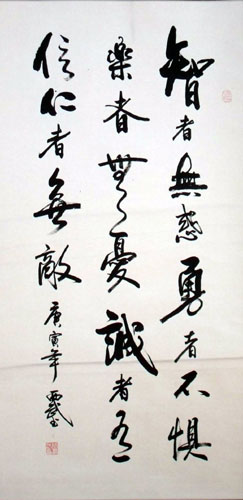 智者無惑勇者不懼
楽者無憂誠者有
信仁者無敵
庚寅年